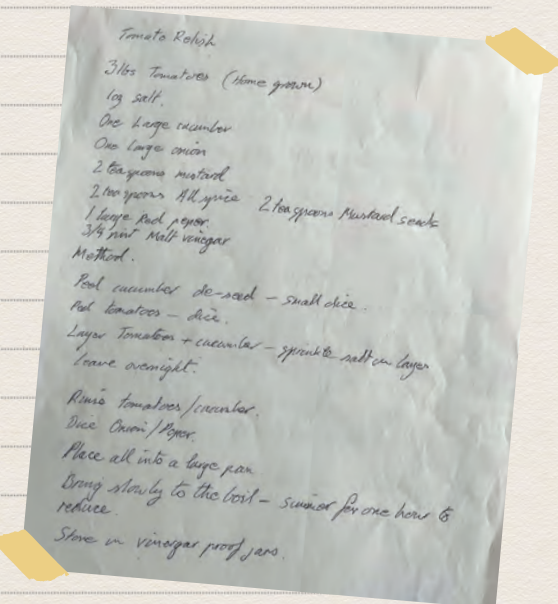 Tomato Relish
3lbs Tomatoes (Home grown)
salt.
One Large cucumber
One Large onion
2 teaspoons mustard
2 teaspoons Allspice 2 teaspoons Mustard seeds
1 large Red peper.
3/4 pint Malt vinegar
Method.
Peel cucumber de-seed - small dice.
Peel tomatoes - dice.
Layer Tomatoes + cucumber - sprinkle salt on layer
Leave overnight.
Rinse tomatoes/cucumber.
Dice Onion/Peper.
Place all into a large pan
Bring slowly to the boil - simmer for one hour to
reduce.
Store in vinergar proof jars.